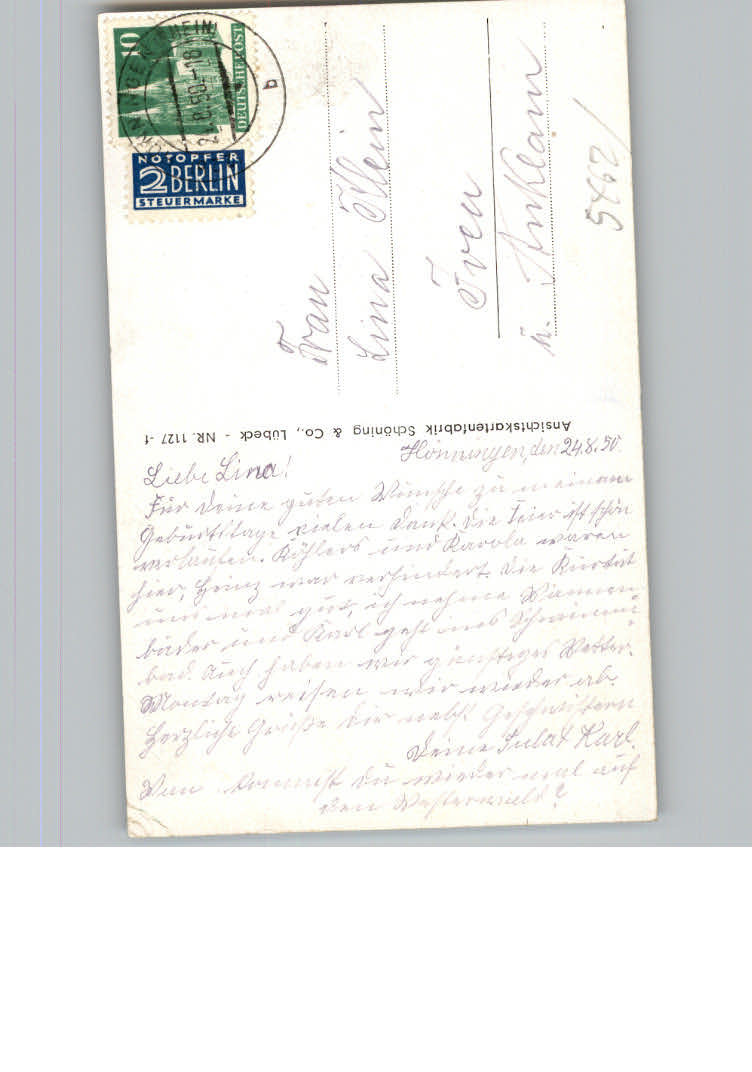 10
DEUTSCHE POST
NOTOPFER
2 BERLIN
STEUERMARKE
24.8.50.-18
b
Frau
Lina Klein
Iven
ü. Anklam
5462/
Ansichtskartenfabrik Schöning & Co., Lübeck - NR. 1127 -f
Hönningen, den 24.8.50.
Liebe Lina!
Für Deine guten Wünsche zu meinem
Geburtstage vielen Dank. Die Feier ist schön
verlaufen. Köhlers und Karola waren
hier, Heinz war verhindert. Die Kur tut
uns mal gut, ich nehme Wannen-
bäder und Karl geht ins Schwimm-
bad. Auch haben wir günstiges Wetter.
Montag reisen wir wieder ab.
Herzliche Grüße Dir nebst Geschwistern
Deine Karl.
Wann kommst Du wieder mal auf
den Westerwald?